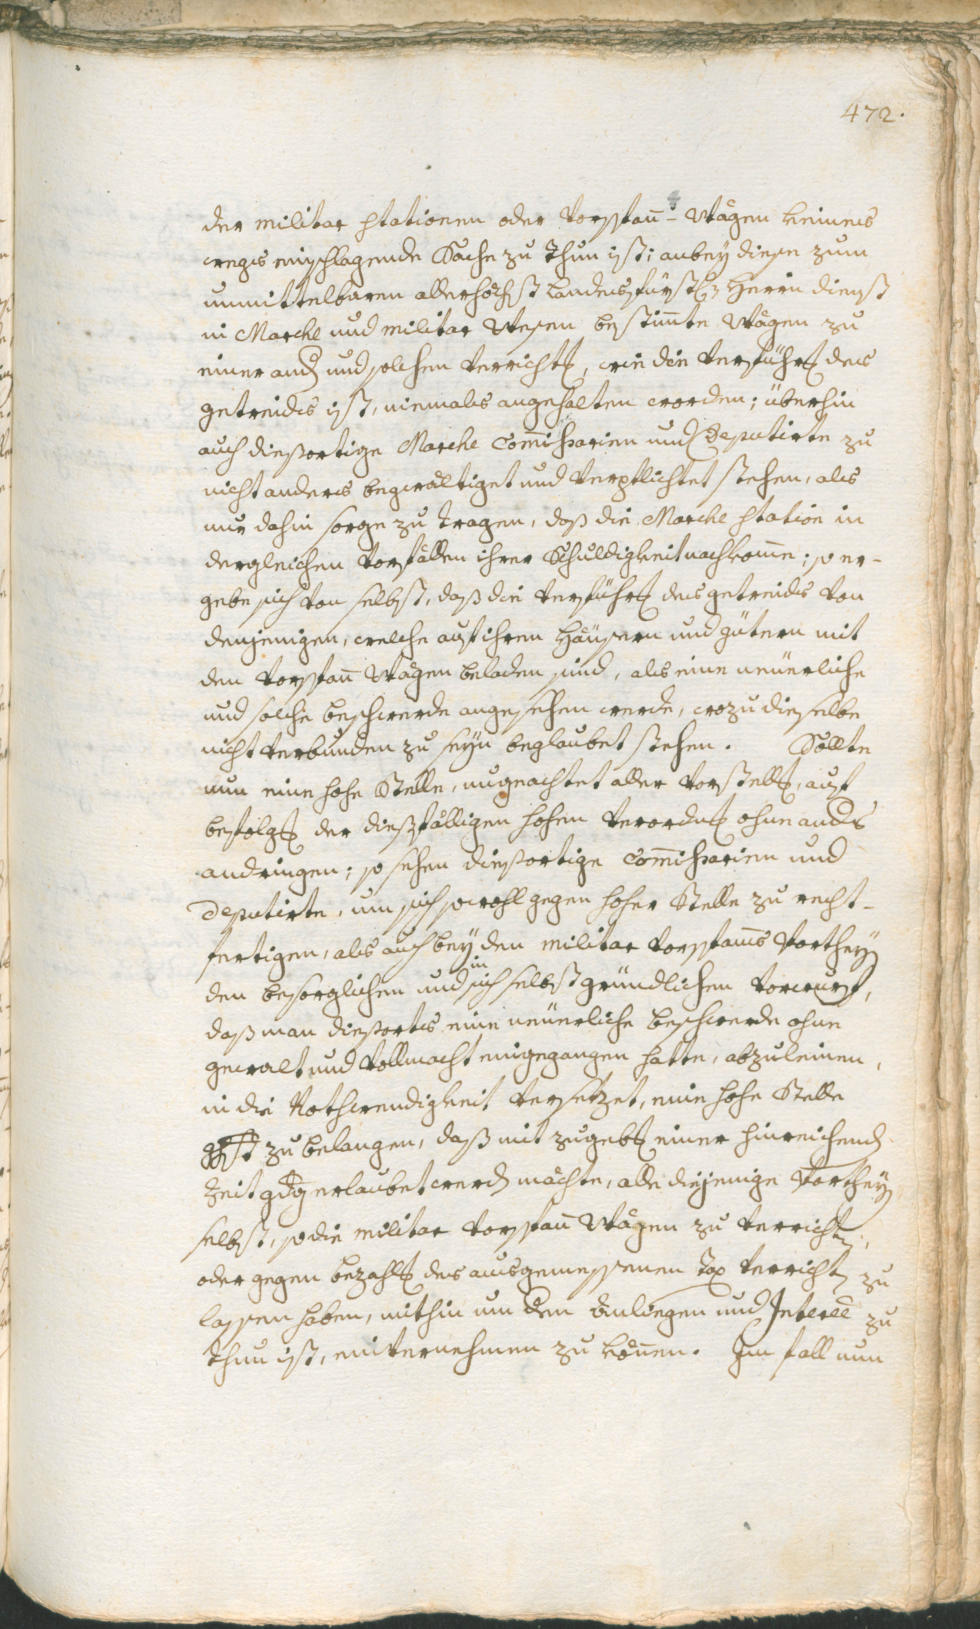 472.
der militar stationen oder Vorspañ-Wägen keines
wegs einschlagende Sache zu thun ist; anbey diese zum
unmittelbaren allerhöchst landesfürstl. Herrn dienst
in Marche und militar Wesen bestim̃te Wägen zu
einer and und solchen Verrichtg, wie die Verführg des
getreides ist, niemals angehalten worden; überhin
auch diesortige Marche Com̃issarien und Deputirte zu
nicht anders begwältiget und Verpflichtet stehen, als
nur dahin sorge zu tragen, daß die Marche station in
dergleichen Vorfällen ihrer Schuldigkeit nachkom̃e; so er-
gebe sich von selbst, daß die Verführg des getreids von
denjenigen, welche auf ihren Häusern und gütern mit
den Vorspañ Wägen beladen sind, als eine neüerliche
und solche beschwerde angesehen werde, wozu dieselbe
nicht Verbunden zu seyn beglaubet stehen. Sollte
nun eine hohe Stelle, ungeachtet aller Vorstellg, auf
befolgg der dießfälligen hohen Verordng ohne anders
andringen; so sehen diesortige Com̃issarien und
Deputirte, um sich sowohl gegen hoher Stelle zu recht-
fertigen, als auch bey den militar Vorspanns Partheyen
den besorglichen und in sich selbst gründlichen Vorwurf,
daß man diesorts eine neüerliche beschwerde ohne
gewalt und Vollmacht eingegangen hatte, abzuleinen,
in die Nothwendigkeit Versetzet, eine hohe Stelle
zu belangen, daß mit zugebg einer hinreichenden
Zeit gdg erlaubet werden möchte, alle diejenige Partheyen
selbst, so die militar Vorspañ Wägen zu Verrichten,
oder gegen bezahlg des ausgemessenen Tax Verrichten zu
lassen haben, mithin um dem anliegen und Interee zu
thun ist, einVernehmen zu köñen. Im fall nun